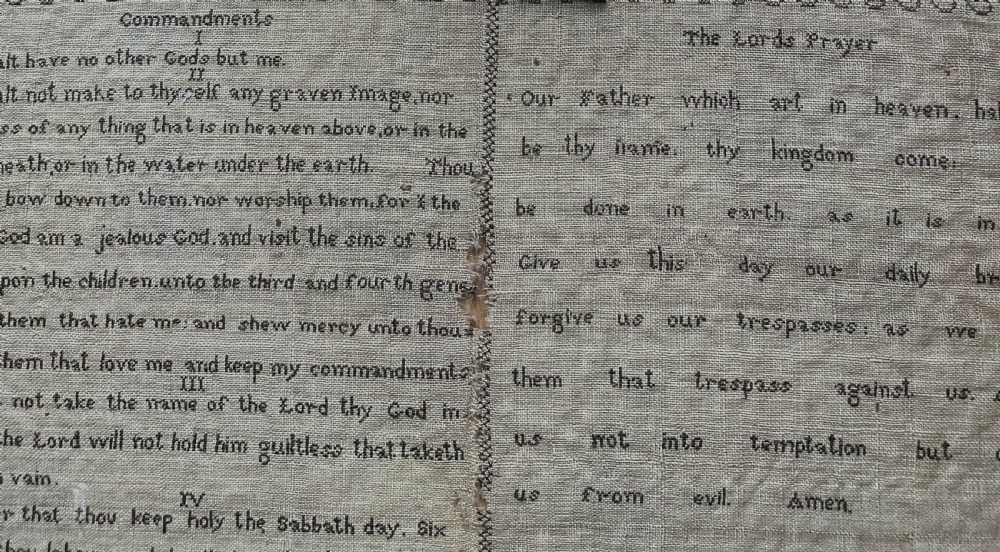 Commandments
I
lt have no other Gods but me.
II
lt not make to thyself any graven Image, nor
ss of any thing that is in heaven above, or in the
neath, or in the water under the earth. Thou
bow down to them, nor worship them, for I the
God am a jealous God, and visit the sins of the
pon the children, unto the third and fourth gene
them that hate me; and shew mercy unto thous
them that love me and keep my commandments
III
not take the name of the Lord thy God in
he Lord will not hold him guiltless that taketh
vain.
IV
r that thou keep holy the Sabbath day. Six
The Lords Prayer
Our Father which art in heaven. hal
be thy name. thy kingdom come;
be done in earth. as it is in
Give us this day our daily br
forgive us our trespasses; as we
them that trespass against us.
us not into temptation but
us from evil. Amen.